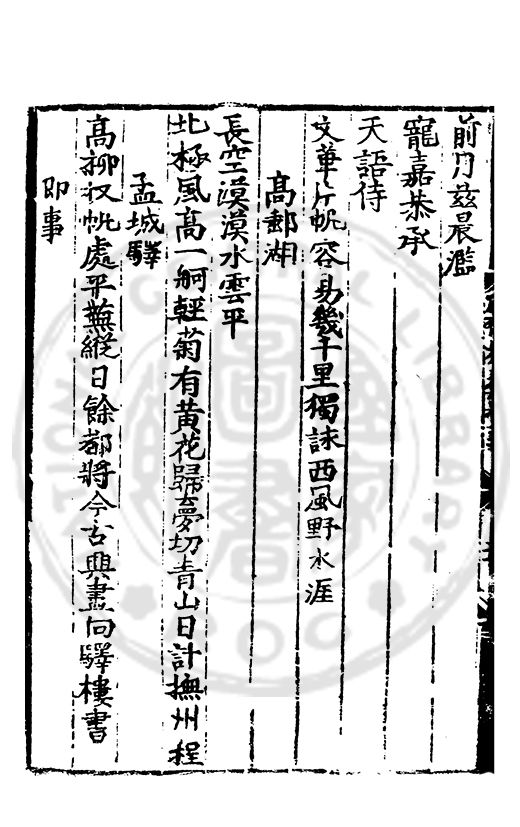 前月茲晨濫
寵嘉恭承
天語侍
文華片帆容易幾千里獨詠西風野水涯
高郵湖
長空漠漠水雲平
北極風高一舸輕菊有黃花歸夢切青山日計撫州程
孟城驛
高柳收帆處平蕪縱日餘都將今古興盡向驛樓書
即事